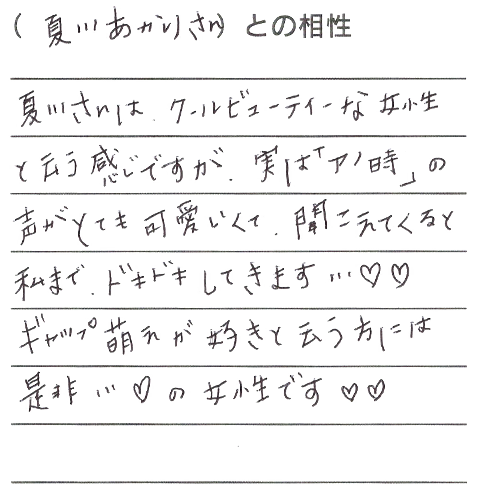 (夏川あかりさん) との相性
夏川さんは、クールビューティーな女性
と云う感じですが、実は「アノ時」の
声がとても可愛いくて、聞こえてくると
私まで、ドキドキしてきます…♡♡
ギャップ萌えが好きと云う方には
是非…♡の女性です♡♡